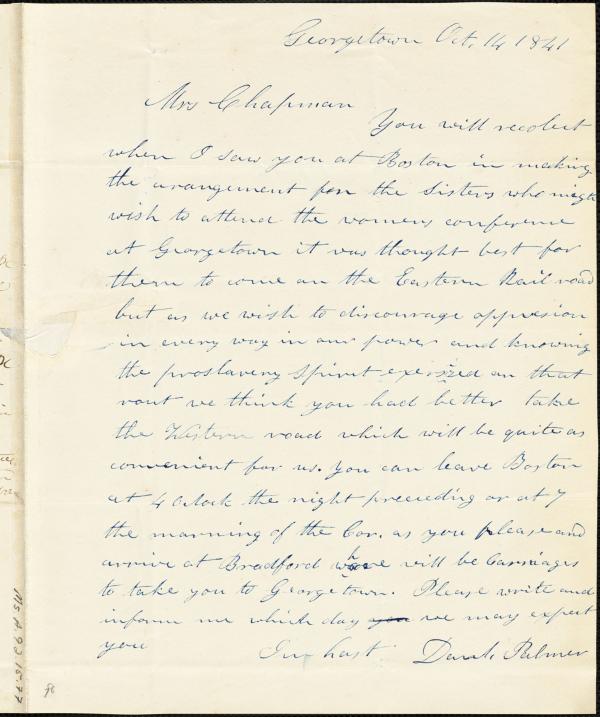 Georgetown Oct. 14 1841
Mrs Chapman
You will recolect
when I saw you at Boston in making
the arangement for the Sisters who might
wish to attend the womens conference
at Georgetown it was thought best for
them to come on the Eastern Rail road
but as we wish to discourage oppresion
in every way in our power and knowing
the proslavery spirit exersized on that
rout we think you had better take
the Western road which will be quite as
convenient for us. You can leave Boston
at 4 Oclock the night preceeding or at 7
the morning of the Con. as you please and
arrive at Bradford where will be Carriages
to take you to Georgetown. Please write and
inform me which day you we may expect
you
In hast Danl. Palmer
Ms. A. 9.2 15.77